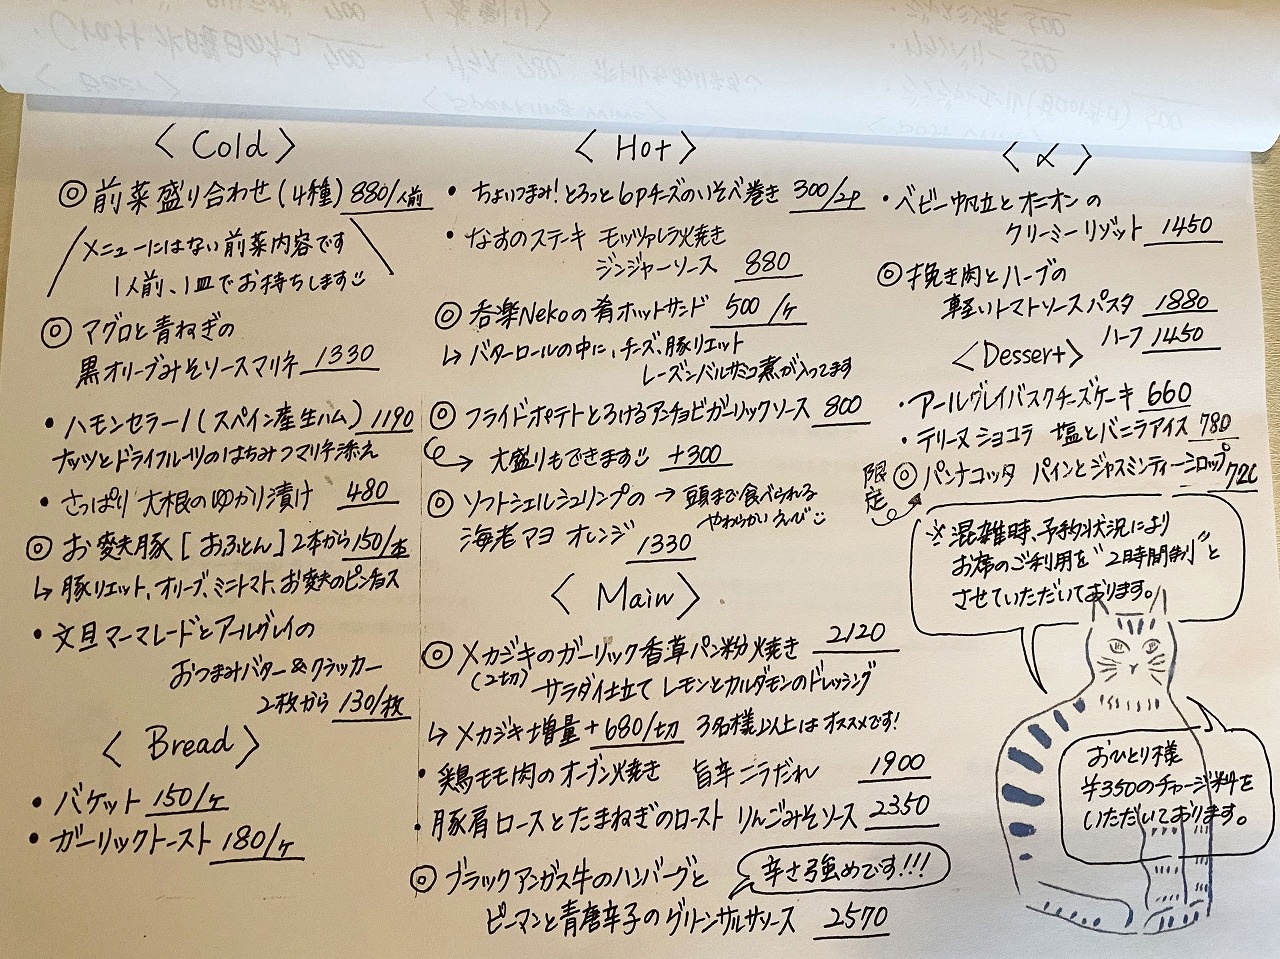 〈 Cold 〉
◎ 前菜盛り合わせ(4種) 880/人前
メニューにはない前菜内容です
1人前、1皿でお持ちします
◎ マグロと青ねぎの
黒オリーブみそソースマリネ 1330
・ハモンセラーノ(スペイン産生ハム) 1190
ナッツとドライフルーツのはちみつマリネ添え
・さっぱり 大根のゆかり漬け 480
◎ お麩豚[おふとん]2本から 150/本
↳ 豚リエット、オリーブ、ミニトマト、お麩のピンチョス
・文旦マーマレードとアールグレイの
おつまみバター&クラッカー
2枚から 130/枚
〈 Bread 〉
・バケット 150/ヶ
・ガーリックトースト 180/ヶ
〈 Hot 〉
・ちょいつまみ!とろっと6pチーズのいそべ巻き 300/2p
・なすのステーキ モッツァレラ焼き
ジンジャーソース 880
◎ 呑楽Nekoの肴ホットサンド 500/ヶ
↳ バターロールの中に、チーズ、豚リエット
レーズンバルサミコ煮が入ってます
◎ フライドポテトとろけるアンチョビガーリックソース 800
→ 大盛りもできます +300
◎ ソフトシェルシュリンプの → 頭まで食べられる
やわらかいえび
海老マヨ オレンジ 1330
〈 Main 〉
◎ メカジキのガーリック香草パン粉焼き 2120
(2切) サラダ仕立て レモンとカルダモンのドレッシング
↳ メカジキ増量+680/切 3名様以上はオススメです!
・鶏モモ肉のオーブン焼き 旨辛ニラだれ 1900
・豚肩ロースとたまねぎのロースト りんごみそソース 2350
◎ ブラックアンガス牛のハンバーグと
辛さ強めです!!!
ピーマンと青唐辛子のグリーンサルサソース 2570
・ベビー帆立とオニオンの
クリーミーリゾット 1450
◎ 挽き肉とハーブの
軽いトマトソースパスタ 1880
ハーフ 1450
〈Dessert〉
・アールグレイバスクチーズケーキ 660
・テリーヌショコラ 塩とバニラアイス 780
限定
◎ パンナコッタ パインとジャスミンティーシロップ 720
※混雑時、予約状況により
お席のご利用を"2時間制"と
させていただいております。
おひとり様
¥350のチャージ料を
いただいております。